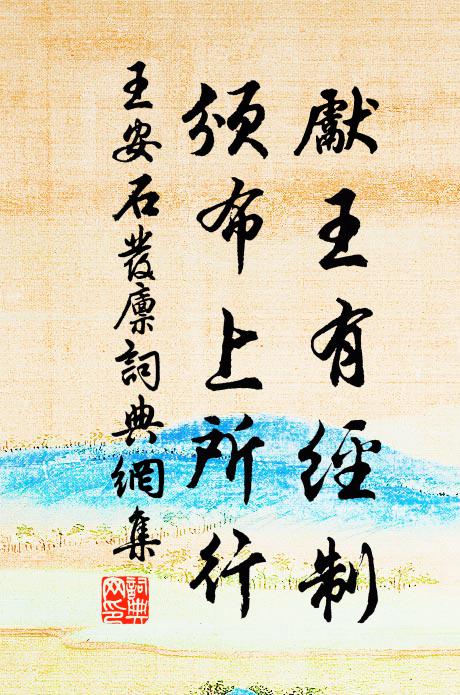 獻王有經制
頒布上所行
王安石發廩詞典網集
詞典網印